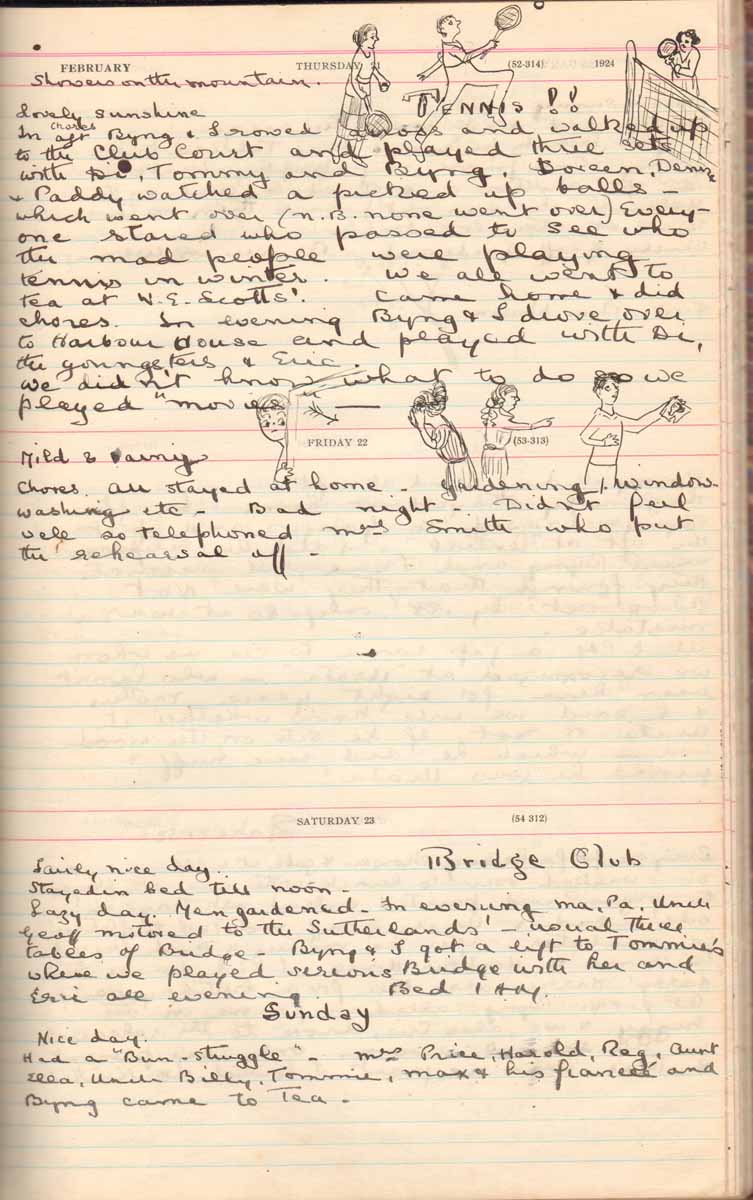 FEBRUARY THURSDAY 21 (52-314) 1924
Showers on the mountain.
Lovely sunshine TENNIS!!
chores
In aft Byng & I rowed across and walked up
to the Club Court and played three sets
with Di, Tommy and Byng. Doreen, Denise
& Paddy watched & picked up balls –
which went over (n.B. none went over) Every-
one stared who passed to see who
the mad people were playing
tennis in winter. We all went to
tea at W.E. Scotts'. Came home & did
chores. In evening Byng & I drove over
to Harbour House and played with Di,
the youngsters & Eric.
We didn't know what to do so we
played "movies" —
FRIDAY 22 (53-313)
Mild & rainy
Chores. All stayed at home – gardening, window-
washing etc – Bad night – Didn't feel
well so telephoned Mrs Smith who put
the rehearsal off –
SATURDAY 23 (54 312)
Fairly nice day. Bridge Club
Stayed in bed till noon –
Lazy day. Men gardened – In evening Ma, Pa, Uncle
Geoff motored to the Sutherlands' – usual three
tables of Bridge – Byng & I got a lift to Tommie's
where we played vicious Bridge with her and
Eric all evening. Bed 1 AM.
Sunday
Nice day.
Had a "Bun-struggle" – Mrs Price, Harold, Reg, Aunt
Ella, Uncle Billy, Tommie, Max & his fianceé and
Byng came to Tea –